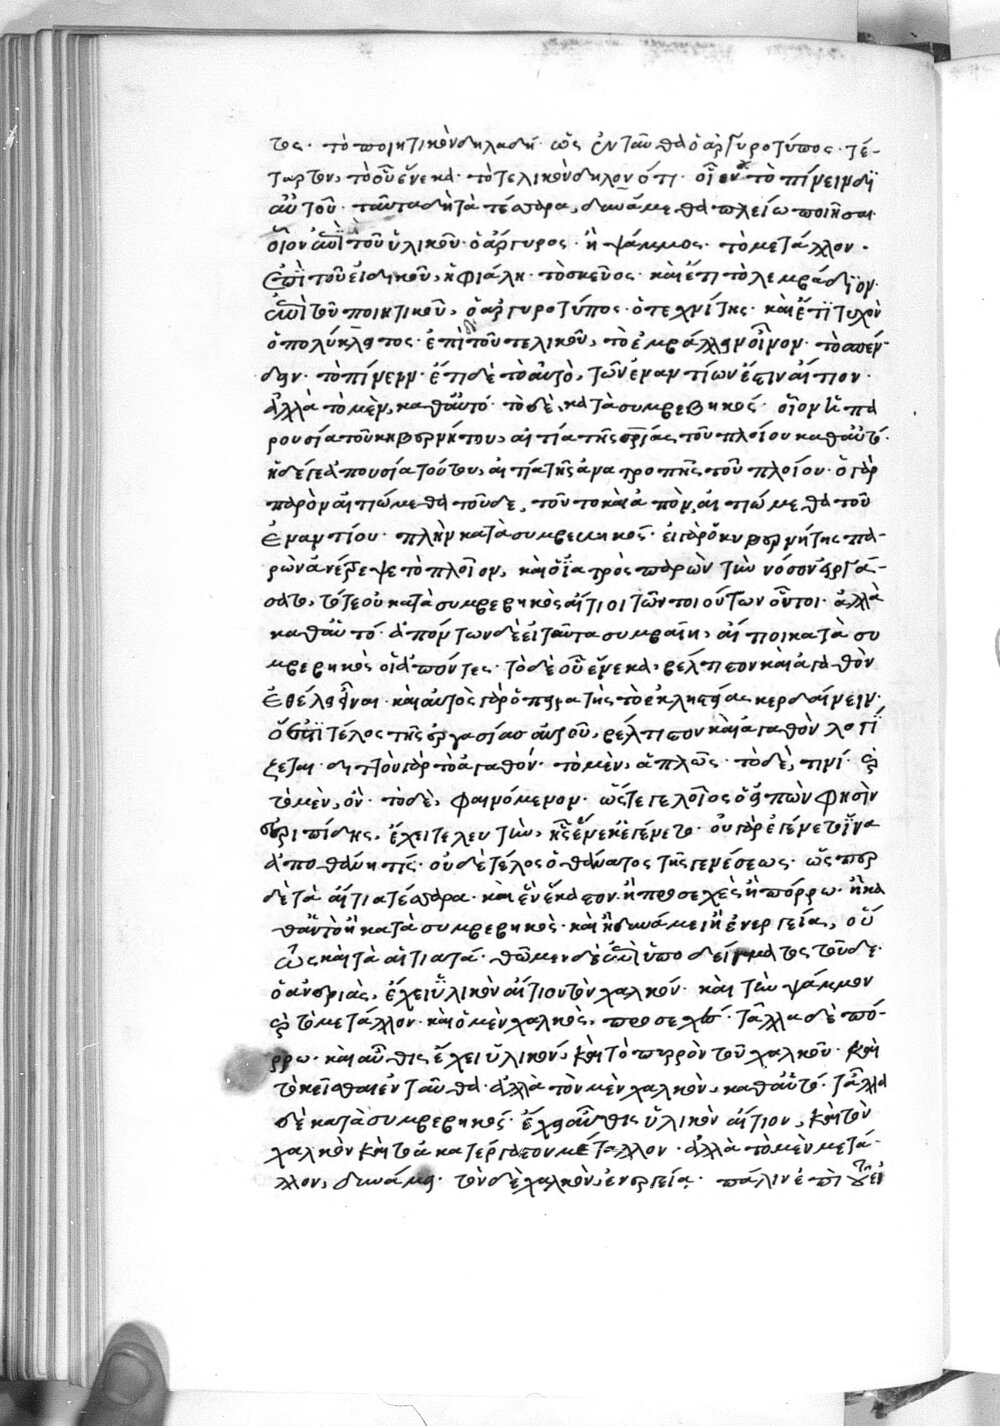 τος· τὸ ποιητικὸν δηλαδή· ὡς ἐνταῦθα ὁ ἀργυροτύπος· τέ-
ταρτον, τὸ οὗ ἕνεκα· τὸ τελικὸν δηλονότι· οἷον τὸ πίνειν δι᾿
αὐτοῦ· ταῦτα δὴ τὰ τέσσαρα, δυνάμεθα πλείω ποιῆσαι·
οἷον ἐπὶ τοῦ ὑλικοῦ· ὁ ἄργυρος· ἡ ψάμμος· τὸ μετάλλον·
ἐπὶ τοῦ εἰδικοῦ, ἡ φιάλη· τὸ σκεῦος· καὶ ἔτι τὸ λεμβάδϊον·
ἐπὶ τοῦ ποιητικοῦ, ὁ ἀργυροτύπος· ὁ τεχνίτης· καὶ ἔτι τυχὸν
ὁ πολύκλητος· ἐπὶ δὲ τοῦ τελικοῦ, τὸ ἐμβάλλειν οἶνον· τὸ σπέν-
δειν· τὸ πίνειν· ἔτι δὲ τὸ αὐτὸ, τῶν ἐναντίων ἐστὶν αἴτιον·
ἀλλὰ τὸ μὲν, καθαὑτό· τὸ δὲ, κατὰ συμβεβηκός· οἷον ἡ πα
ρουσία τοῦ κυβερνήτου, αἰτία τῆς σωτηρίας τοῦ πλοίου καθαὑτό·
ἡ δέ γε ἀπουσία τούτου, αἰτία τῆς ἀνατροπῆς τοῦ πλοίου· ὃ γὰρ
παρὸν αἰτιώμεθα τοῦδε, τοῦτο καὶ ἀπὸν, αἰτιώμεθα τοῦ
ἐναντίου· πλὴν κατὰ συμβεβηκός· εἰ γὰρ ὁ κυβερνήτης πα-
ρὼν ἀνέτρεψε τὸ πλοῖον, καὶ ὁ ἰατρὸς παρὼν τὴν νόσον εἰργά-
σατο, τότε οὐ κατὰ συμβεβηκὸς αἴτιοι τῶν τοιούτων οὗτοι· ἀλλὰ
καθαὑτό· ἀπόντων δὲ εἰ ταῦτα συμβαίη, αἴτιοι κατὰ συ
μβεβηκὸς οἱ ἀπόντες· τὸ δὲ οὗ ἕνεκα, βέλτιστον καὶ ἀγαθὸν
ἐθέλει εἶναι· καὶ αὐτὸς γὰρ ὁ πειρατὴς τὸ ἐκ ληστείας κερδαίνειν·
ὅ ἐστι τέλος τῆς ἐργασίας αὐτοῦ, βέλτιστον καὶ ἀγαθὸν λογί
ζεται· διττὸν γὰρ τὸ ἀγαθόν· τὸ μὲν, ἁπλῶς· τὸ δὲ, τινί· καὶ
τὸ μὲν, ὄν· τὸ δὲ, φαινόμενον· ὥστε γελοῖος ὁ εἰπὼν φησὶν
εὐριπίδης, ἔχει τελευτὴν, ἧς εἵνεκ᾿ ἐγένετο· οὐ γὰρ ἐγένετο ἵνα
ἀποθάνῃ τίς· οὐδὲ τέλος ὁ θάνατος τῆς γενέσεως· ὥσπερ
δὲ τὰ αἴτια τέσσαρα· καὶ ἓν ἕκαστον ἢ προσεχὲς ἢ πόρρω· ἢ κα
θαὑτὸ ἢ κατὰ συμβεβηκὸς· καὶ ἢ δυνάμει ἢ ἐνεργεία, οὕ
τως καὶ τὰ αἰτιατά· θῶμεν δὲ ἐπὶ ὑποδείγματος τοῦδε·
ὁ ἀνδριὰς, ἔχει ὑλικὸν αἴτιον τὸν χαλκόν· καὶ τὴν ψάμμον
καὶ τὸ μετάλλον· καὶ ὁ μὲν χαλκὸς, προσεχής· τἄλλα δὲ πό-
ρρω· καὶ αὖθις ἔχει ὑλικόν, καὶ τὸ πυρρὸν τοῦ χαλκοῦ· καὶ
τὸ κεῖσθαι ἐνταῦθα· ἀλλὰ τὸν μὲν χαλκὸν, καθαὑτό· τἄλλα
δὲ κατὰ συμβεβηκός· ἔχει αὖθις ὑλικὸν αἴτιον, καὶ τὸν
χαλκὸν καὶ τὸ ἀκατέργαστον μέταλλον· ἀλλὰ τὸ μὲν μετά-
λλον, δυνάμει· τὸν δὲ χαλκὸν, ἐνεργεία· πάλιν ἐπὶ τοῦ εἰ